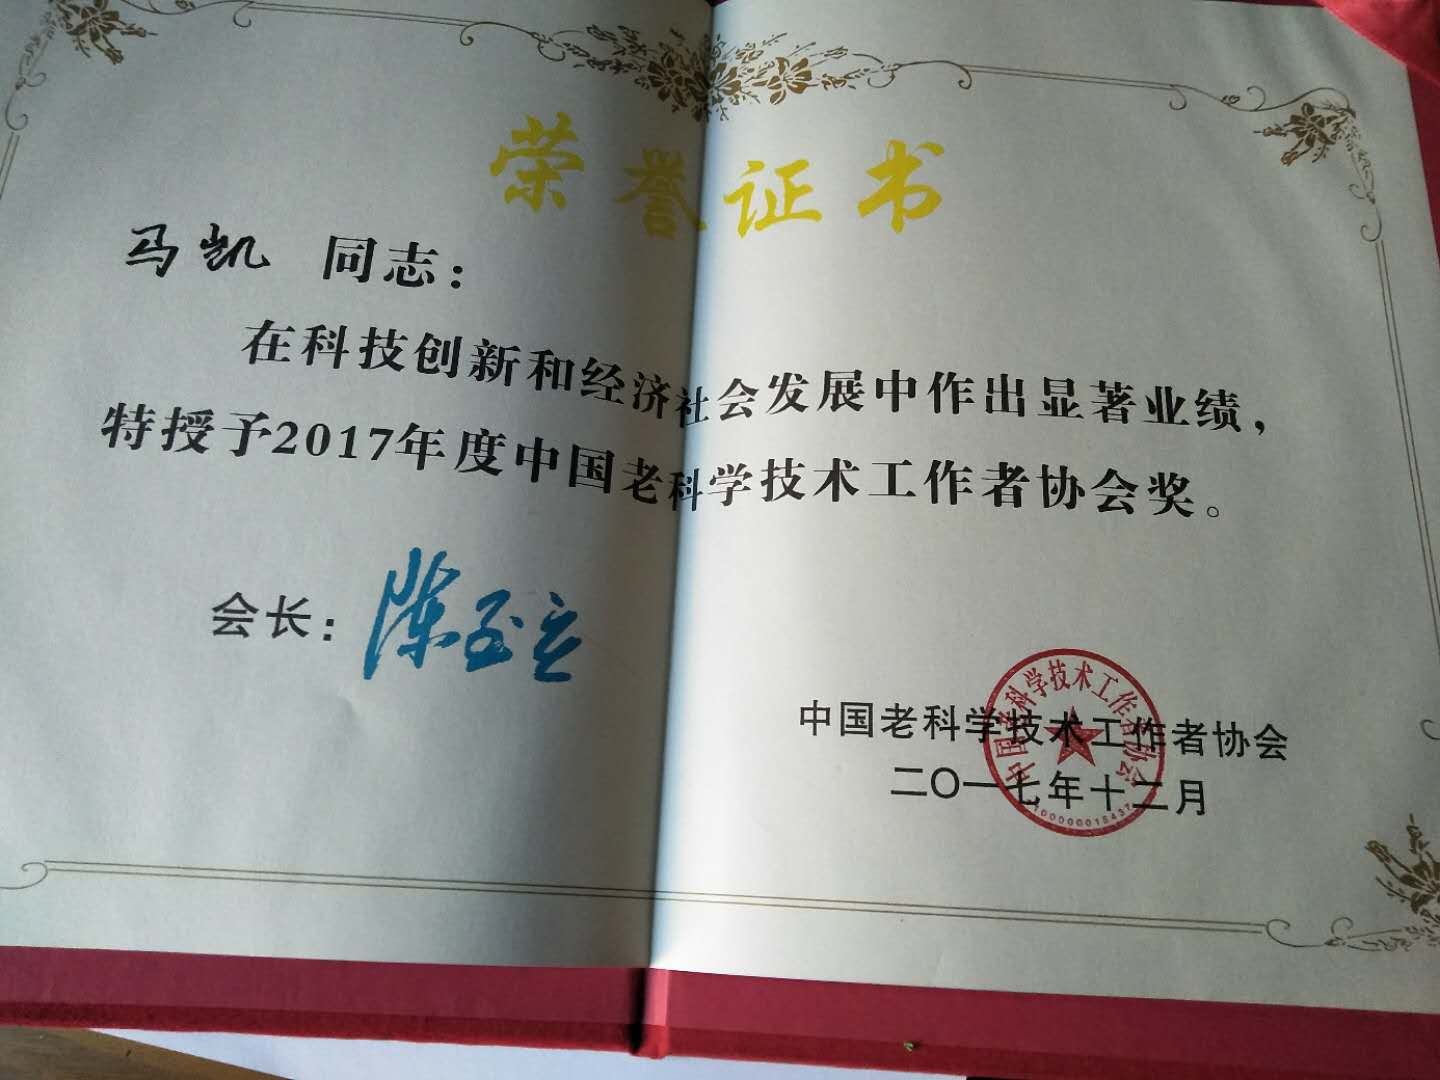 荣誉证书
马凯 同志：
在科技创新和经济社会发展中作出显著业绩，
特授予2017年度中国老科学技术工作者协会奖。
会长：陈至立
中国老科学技术工作者协会
二〇一七年十二月
中国老科学技术工作者协会